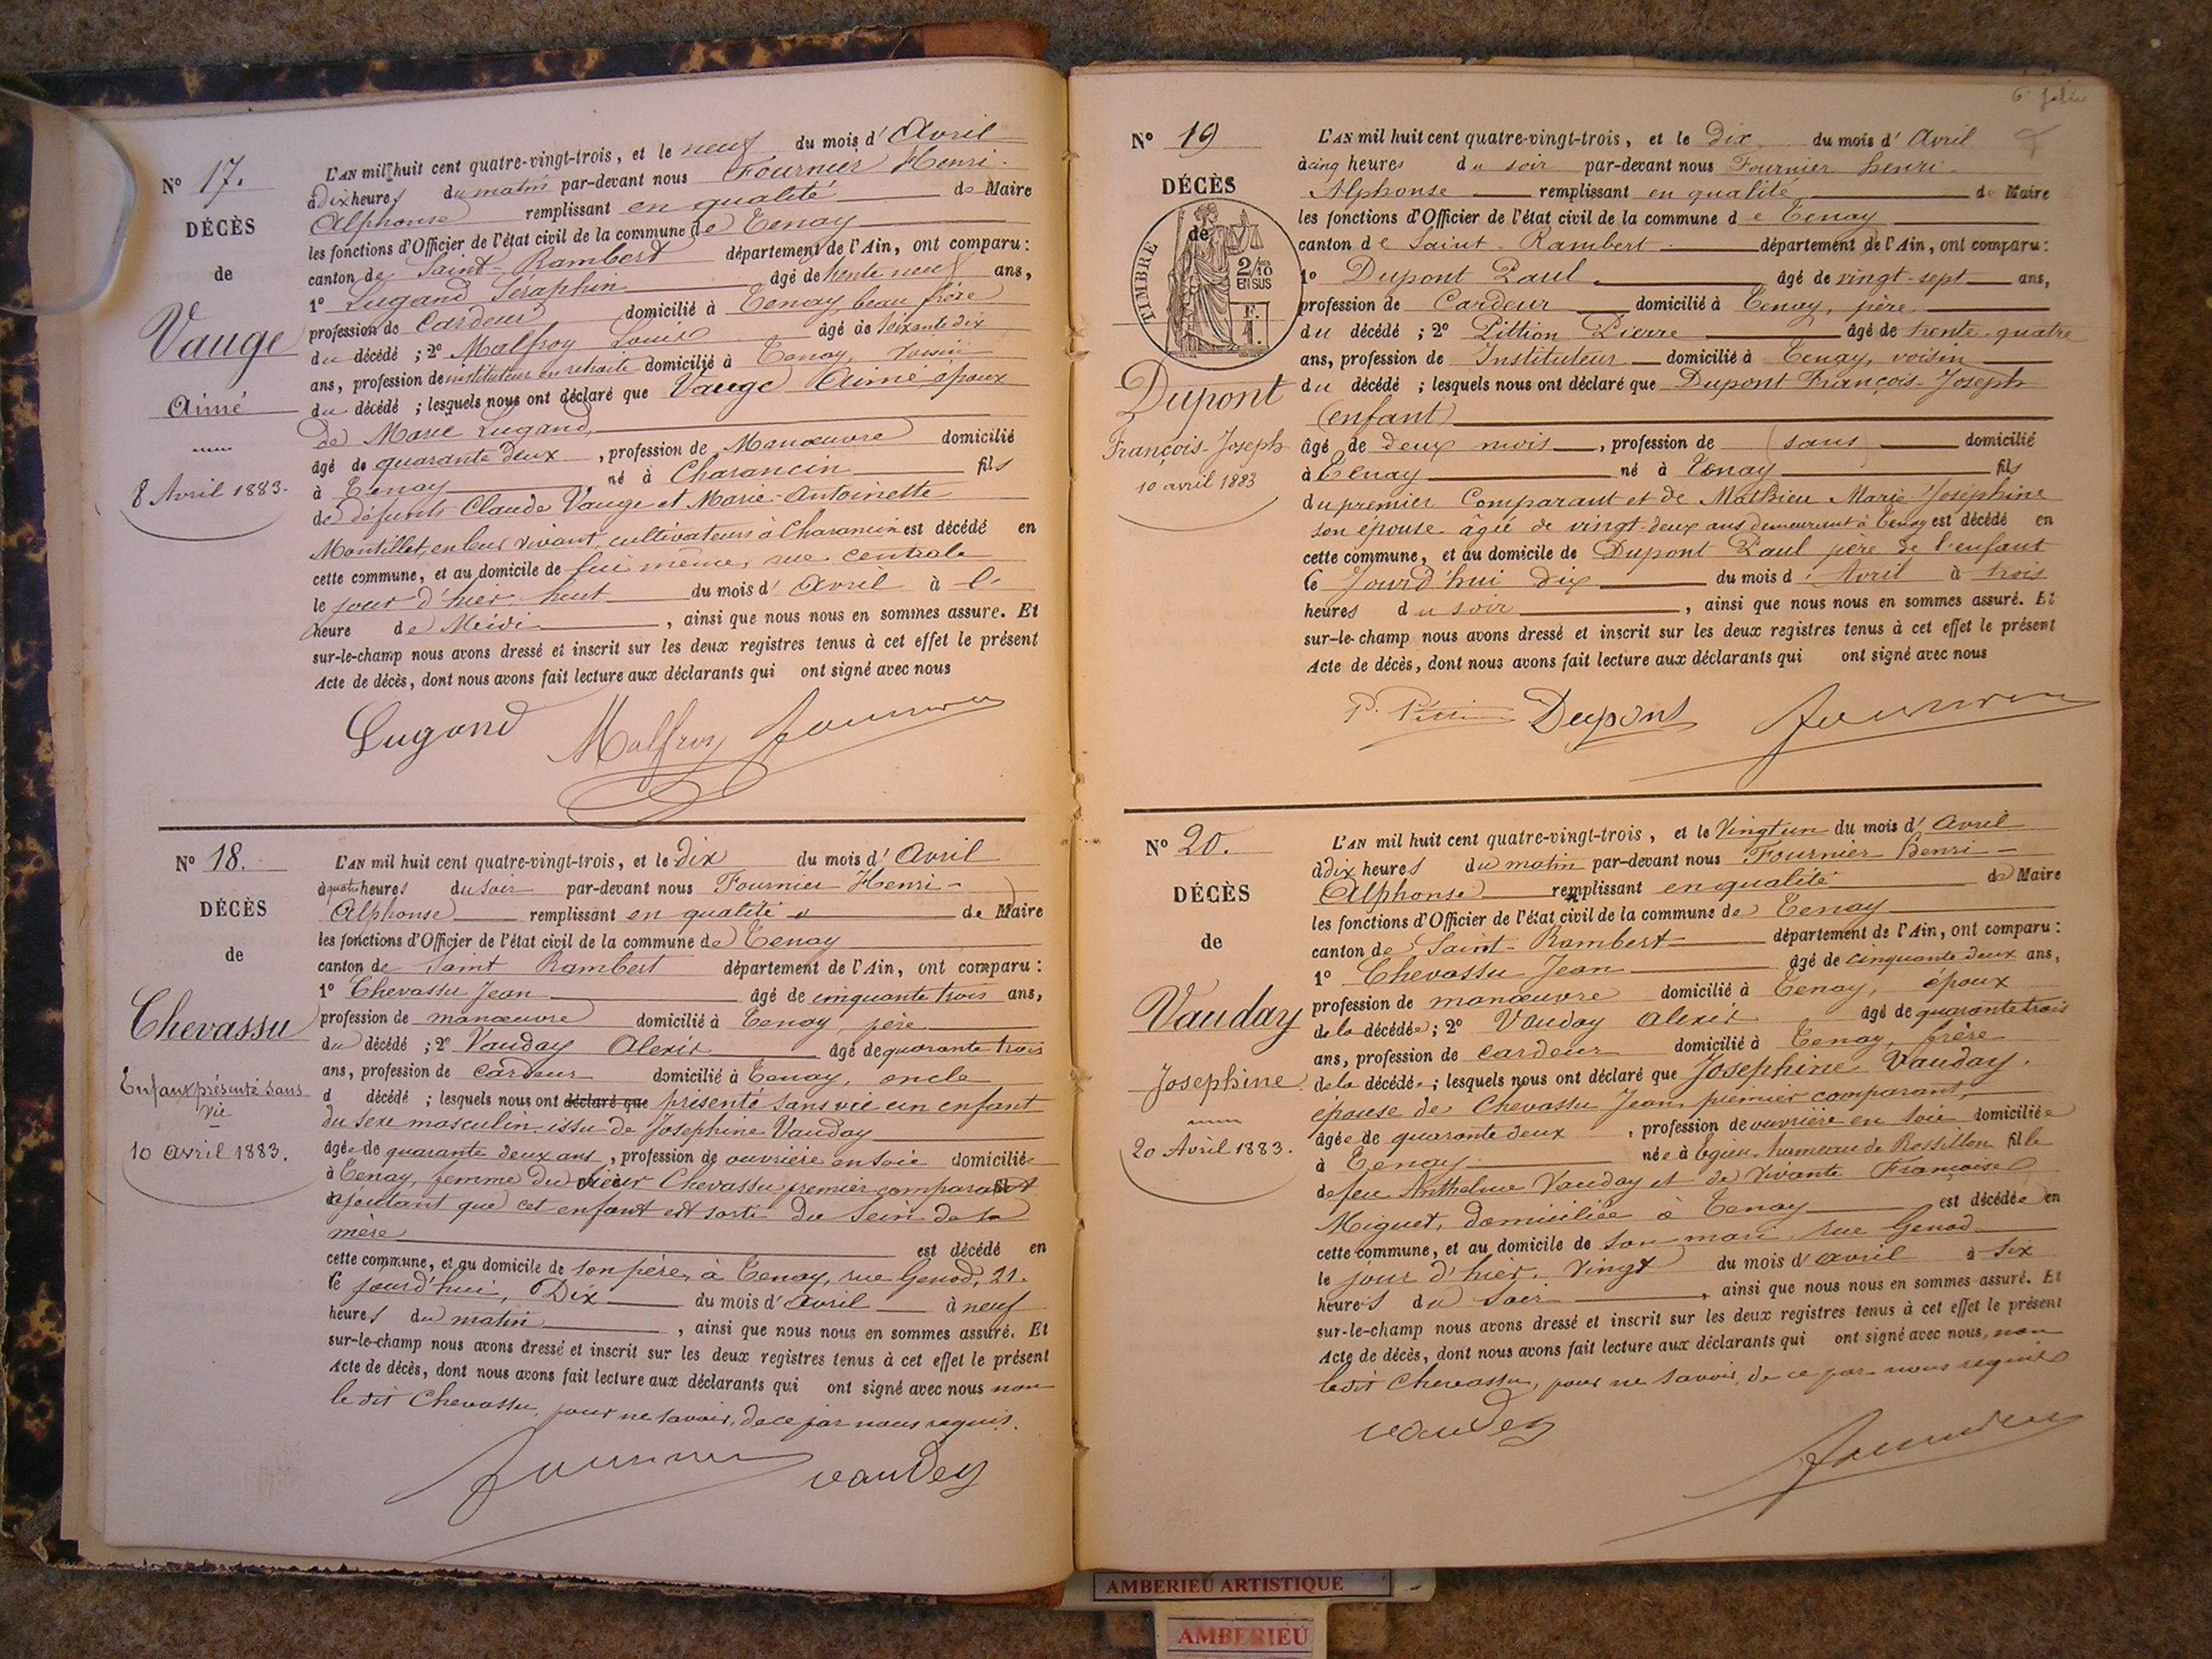 N° 17.
DÉCÈS
de
Vauge
Aimé
8 Avril 1883.
L'AN mil huit cent quatre-vingt-trois, et le neuf du mois d'Avril
à dix heures du matin par-devant nous Fournier Henri-
Alphonse remplissant en qualité de Maire
les fonctions d'Officier de l'état civil de la commune de Tenay
canton de Saint-Rambert département de l'Ain, ont comparu :
1° Lugand Séraphin âgé de trente neuf ans,
profession de Cardeur domicilié à Tenay, beau frère
du décédé ; 2° Malfroy Louis âgé de soixante dix
ans, profession de instituteur en retraite domicilié à Tenay, voisin
du décédé ; lesquels nous ont déclaré que Vauge Aimé époux
de Marie Lugand,
âgé de quarante deux, profession de Manœuvre domicilié
à Tenay, né à Charancin fils
de défunts Claude Vauge et Marie-Antoinette
Montillet, en leur vivant cultivateurs à Charancin est décédé en
cette commune, et au domicile de lui même, rue centrale
le jour d'hier, huit du mois d'Avril à l'
heure de Midi, ainsi que nous nous en sommes assuré. Et
sur-le-champ nous avons dressé et inscrit sur les deux registres tenus à cet effet le présent
Acte de décès, dont nous avons fait lecture aux déclarants qui ont signé avec nous
Lugand Malfroy Fournier
N° 18.
DÉCÈS
de
Chevassu
Enfant présenté sans
vie
10 Avril 1883.
L'AN mil huit cent quatre-vingt-trois, et le dix du mois d'Avril
à quatre heures du soir par-devant nous Fournier Henri-
Alphonse remplissant en qualité de Maire
les fonctions d'Officier de l'état civil de la commune de Tenay
canton de Saint Rambert département de l'Ain, ont comparu :
1° Chevassu Jean âgé de cinquante trois ans,
profession de manœuvre domicilié à Tenay, père
du décédé ; 2° Vauday Alexis âgé de quarante trois
ans, profession de cardeur domicilié à Tenay, oncle
d décédé ; lesquels nous ont déclaré que présenté sans vie un enfant
du sexe masculin issu de Josephine Vauday
âgée de quarante deux ans, profession de ouvrière en soie domiciliée
à Tenay, femme du sieur Chevassu premier comparant
ajoutant que cet enfant est sorti du sein de sa
mère est décédé en
cette commune, et au domicile de son père, à Tenay, rue Genod, 21.
le jourd'hui, Dix du mois d'Avril à neuf
heures du matin, ainsi que nous nous en sommes assuré. Et
sur-le-champ nous avons dressé et inscrit sur les deux registres tenus à cet effet le présent
Acte de décès, dont nous avons fait lecture aux déclarants qui ont signé avec nous non
le dit Chevassu, pour ne savoir, de ce par nous requis.
Fournier vaudey
6e folio
N° 19
DÉCÈS
de
TIMBRE
2/10
EN SUS
Dupont
François-Joseph
10 avril 1883
L'AN mil huit cent quatre-vingt-trois, et le Dix du mois d'Avril
à cinq heures du soir par-devant nous Fournier henri-
Alphonse remplissant en qualité de Maire
les fonctions d'Officier de l'état civil de la commune de Tenay
canton de Saint-Rambert département de l'Ain, ont comparu :
1° Dupont Paul âgé de vingt-sept ans,
profession de Cardeur domicilié à Tenay, père
du décédé ; 2° Pittion Pierre âgé de trente-quatre
ans, profession de Instituteur domicilié à Tenay, voisin
du décédé ; lesquels nous ont déclaré que Dupont François-Joseph
(enfant)
âgé de deux mois, profession de (sans) domicilié
à Tenay né à Tenay fils
du premier Comparant et de Mathieu Marie Joséphine
son épouse âgée de vingt-deux ans demeurant à Tenay est décédé en
cette commune, et au domicile de Dupont Paul père de l'enfant
le Jourd'hui dix du mois d'Avril à trois
heures du soir, ainsi que nous nous en sommes assuré. Et
sur-le-champ nous avons dressé et inscrit sur les deux registres tenus à cet effet le présent
Acte de décès, dont nous avons fait lecture aux déclarants qui ont signé avec nous
Dupont Fournier
N° 20.
DÉCÈS
de
Vauday
Josephine
20 Avril 1883.
L'AN mil huit cent quatre-vingt-trois, et le Vingt un du mois d'Avril
à dix heures du matin par-devant nous Fournier Henri-
Alphonse remplissant en qualité de Maire
les fonctions d'Officier de l'état civil de la commune de Tenay
canton de Saint-Rambert département de l'Ain, ont comparu :
1° Chevassu Jean âgé de cinquante deux ans,
profession de manœuvre domicilié à Tenay, époux
de la décédée ; 2° Vauday Alexis âgé de quarante trois
ans, profession de cardeur domicilié à Tenay, frère
de la décédée ; lesquels nous ont déclaré que Josephine Vauday.
épouse de Chevassu Jean, premier comparant,
âgée de quarante deux, profession de ouvrière en soie domiciliée
à Tenay née à Egieu, hameau de Rossillon fille
de feu Anthelme Vauday et de vivante Françoise
Miguet, domiciliée à Tenay est décédée en
cette commune, et au domicile de son mari, rue Genod
le jour d'hier, vingt du mois d'Avril à six
heures du soir, ainsi que nous nous en sommes assuré. Et
sur-le-champ nous avons dressé et inscrit sur les deux registres tenus à cet effet le présent
Acte de décès, dont nous avons fait lecture aux déclarants qui ont signé avec nous, non
ledit Chevassu, pour ne savoir, de ce par nous requis
vaudey Fournier
AMBERIEU ARTISTIQUE
AMBERIEU